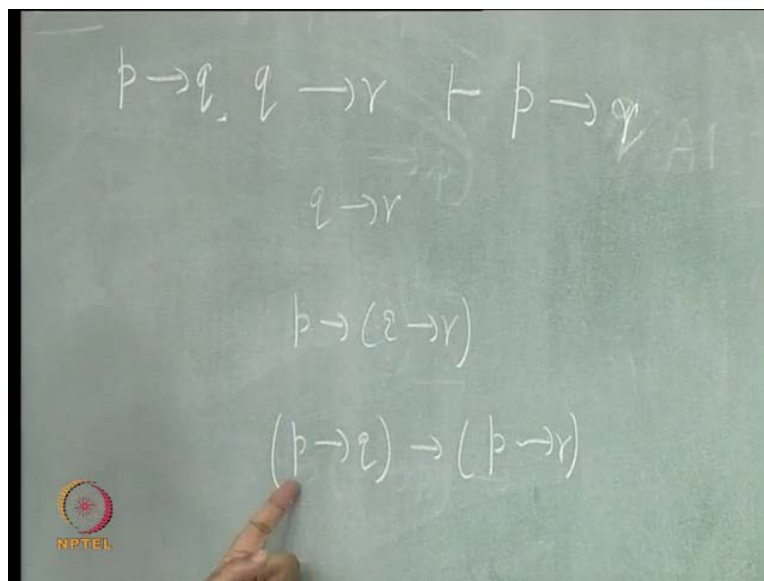 p → q, q → r ⊢ p → q
A1
q → r
p → (q → r)
(p → q) → (p → r)
NPTEL